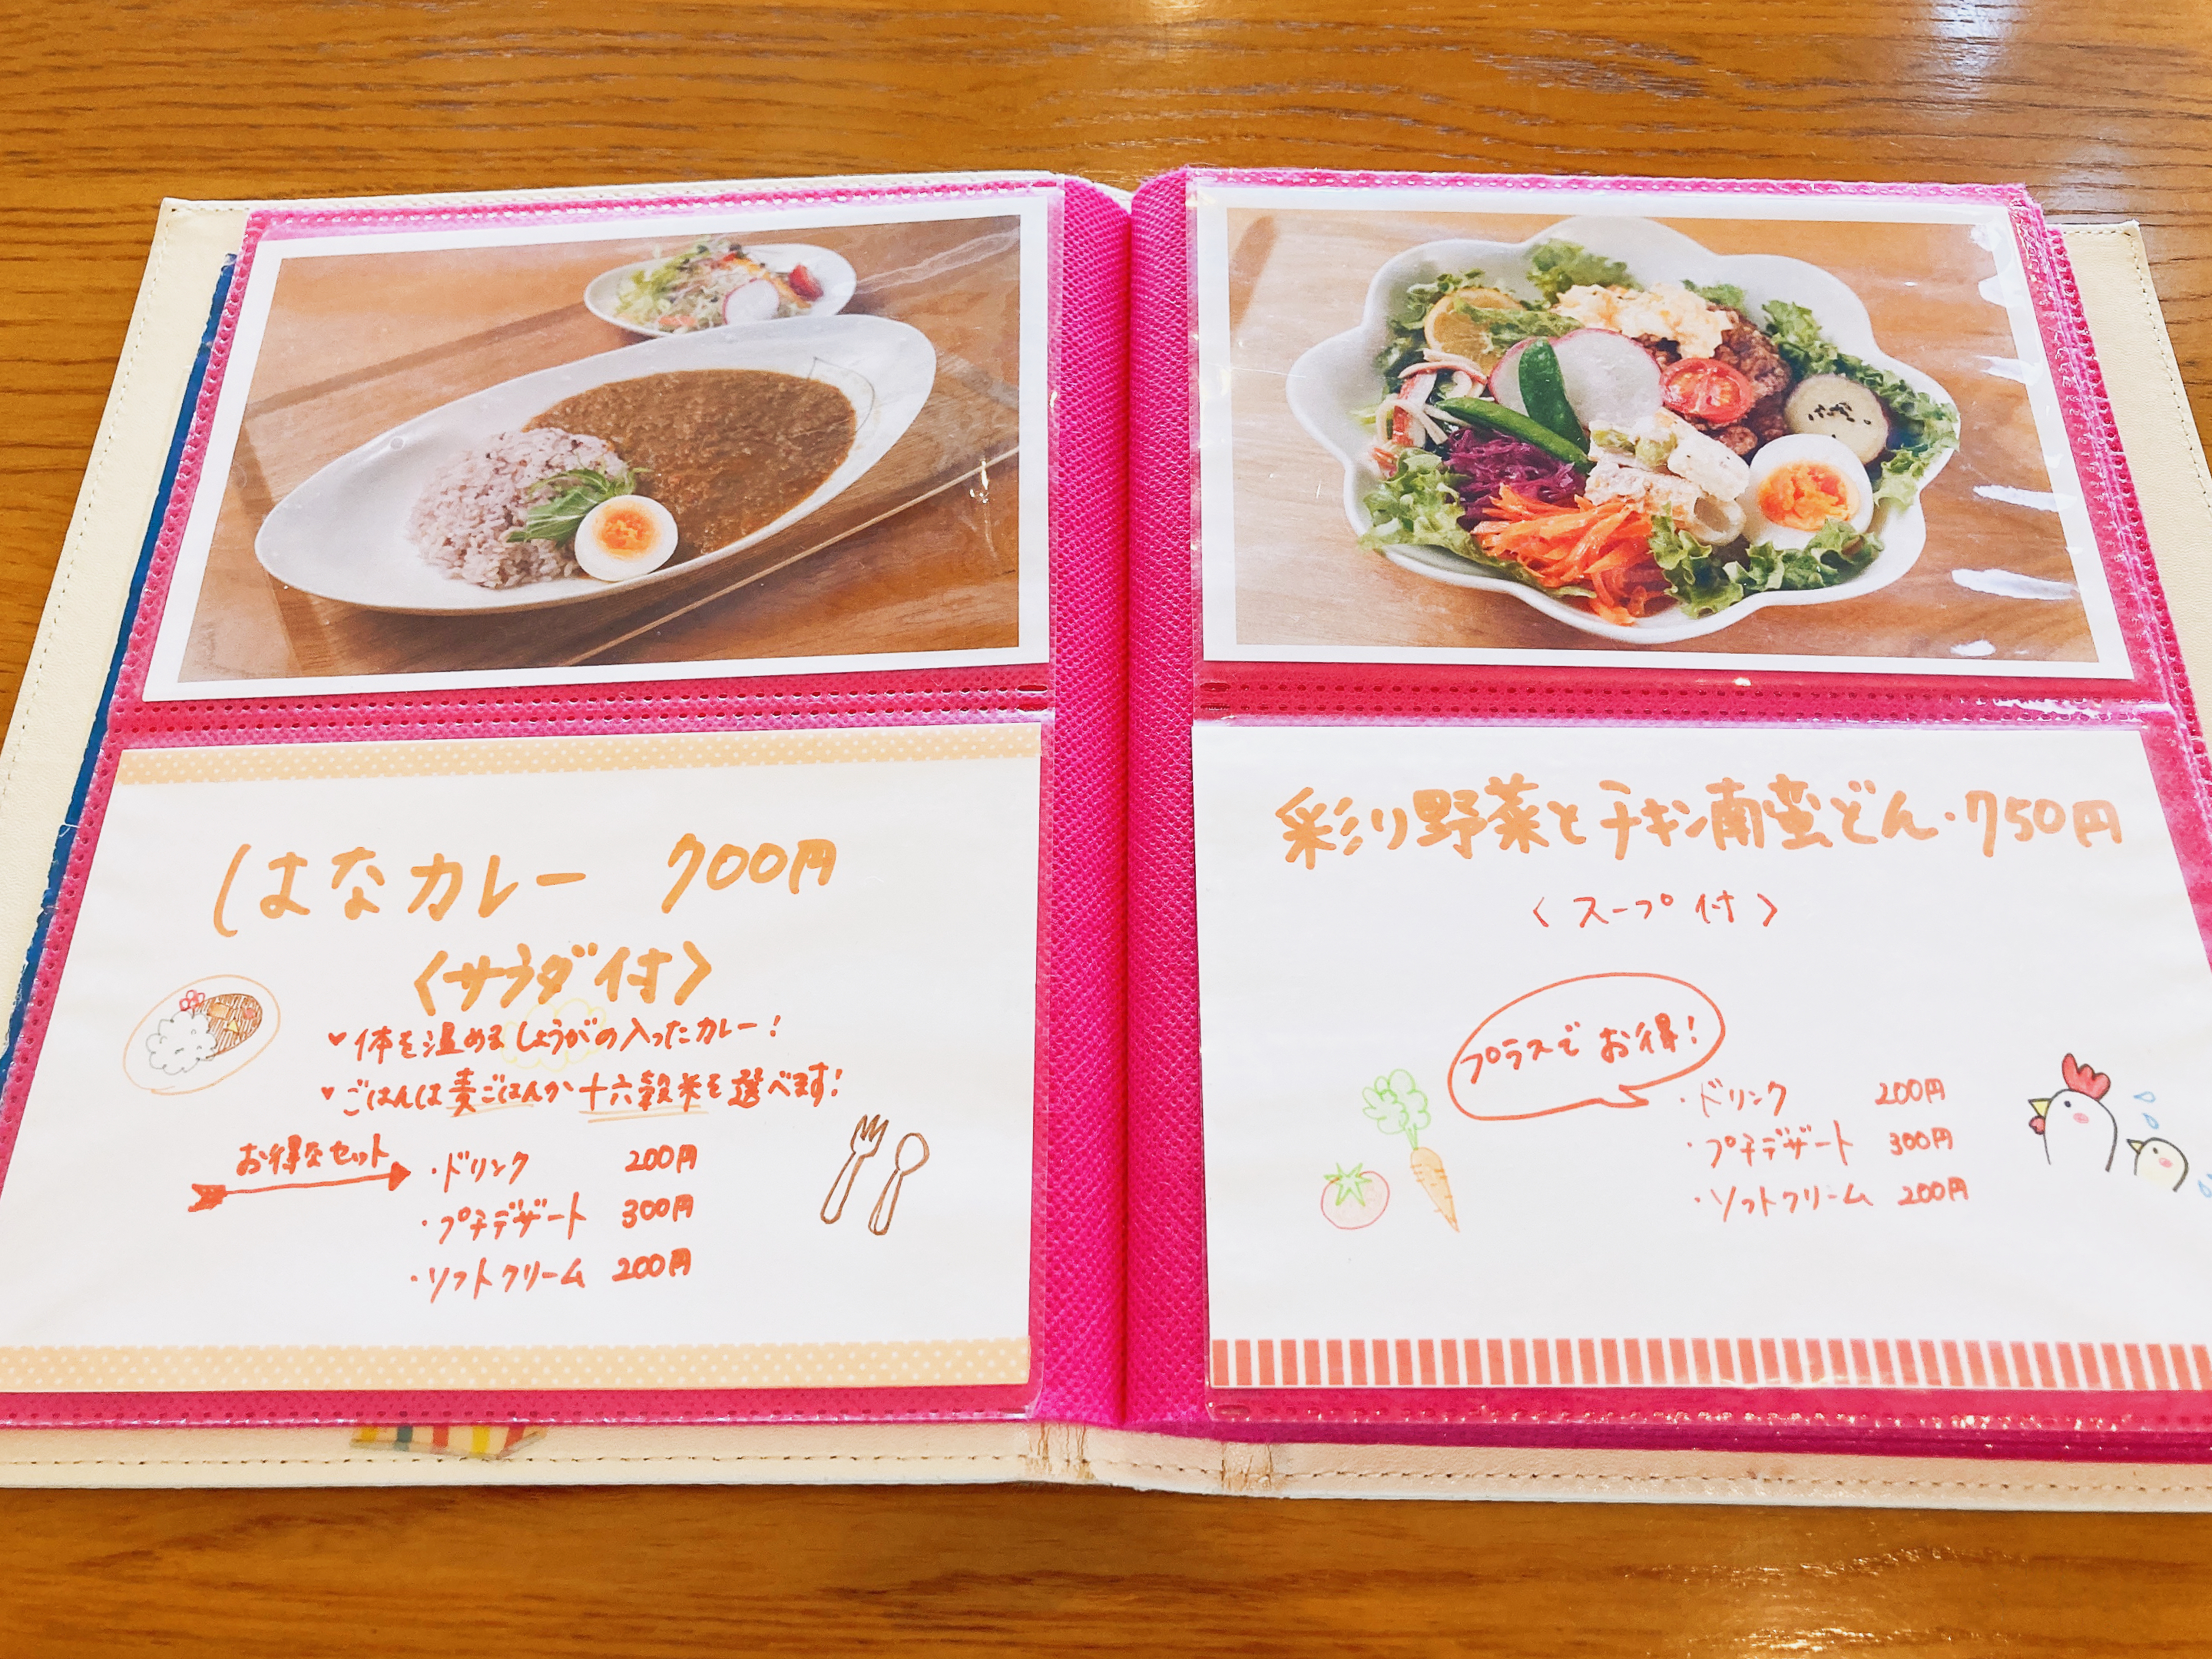 はなカレー 700円
〈サラダ付〉
♥体を温めるしょうがの入ったカレー!
♥ごはんは麦ごはんか十六穀米を選べます!
お得なセット
・ドリンク 200円
・プチデザート 300円
・ソフトクリーム 200円
彩り野菜とチキン南蛮どん・750円
〈スープ付〉
プラスでお得!
・ドリンク 200円
・プチデザート 300円
・ソフトクリーム 200円